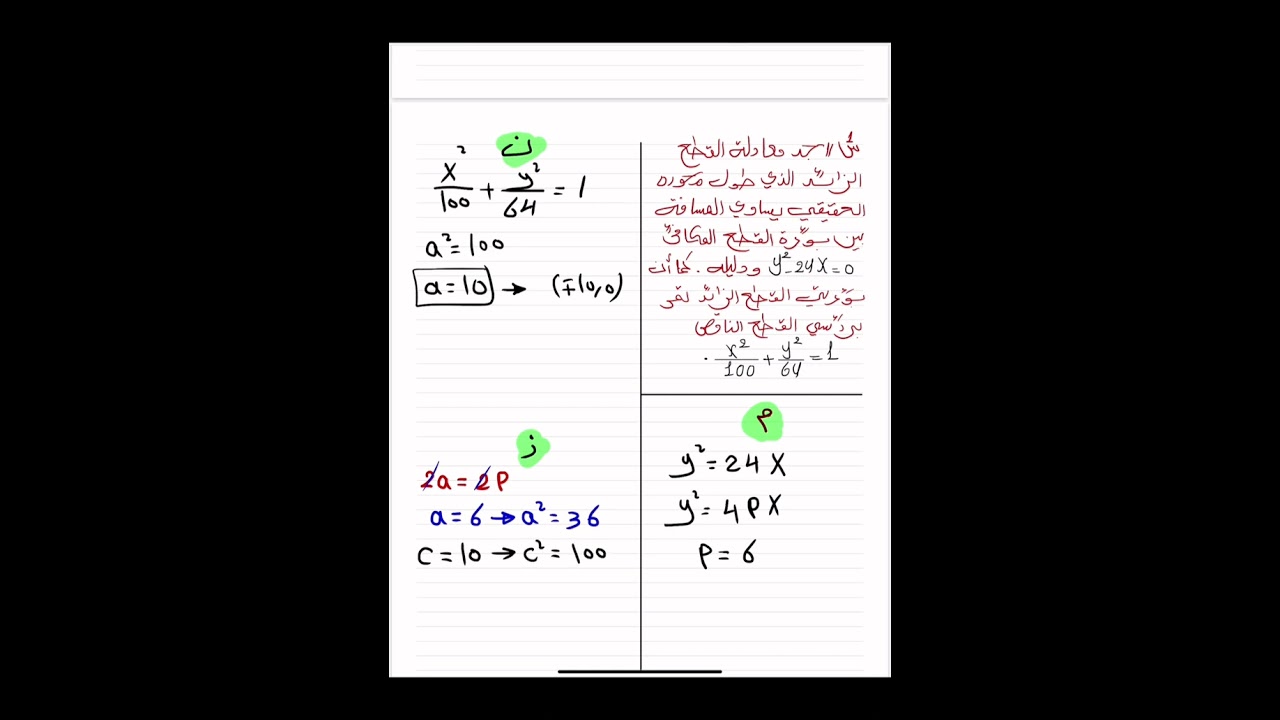 س1 // جد معادلة القطع
الزائد الذي طول محوره
الحقيقي يساوي المسافة
بين بؤرة القطع المكافئ
y²-24x=0 ودليله. كما أن
بؤرتي القطع الزائد
برأسي القطع الناقص
x²/100 + y²/64 = 1 .
م
y² = 24 X
y² = 4 P X
P = 6
ن
x²/100 + y²/64 = 1
a² = 100
a = 10 → (∓10,0)
ز
2a = 2P
a = 6 → a² = 36
c = 10 → c² = 100